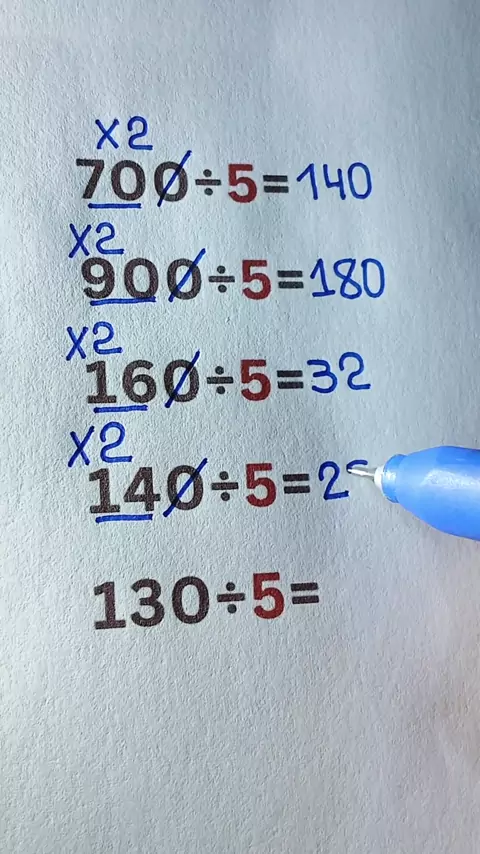 X2
700÷5=140
X2
900÷5=180
X2
160÷5=32
X2
140÷5=2
130÷5=